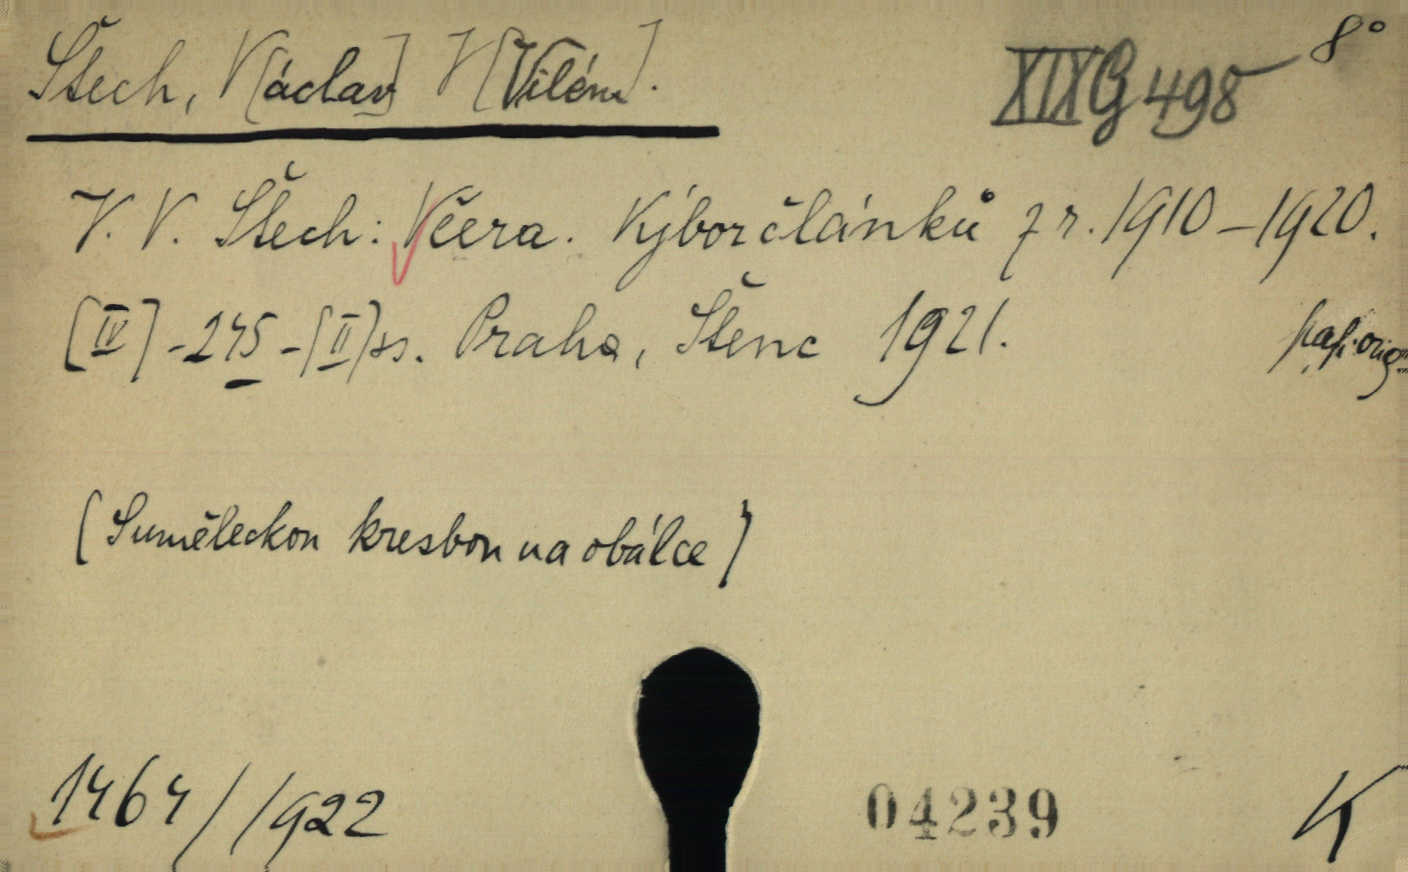 Štech, V[áclav] V[ilém].
XIX G 498 8°
V. V. Štech: Včera. Výbor článků z r. 1910-1920.
[IV]-245-[II] ss. Praha, Štenc 1921.
pap. orig.
(S uměleckou kresbou na obálce)
1464/1922
04239
K